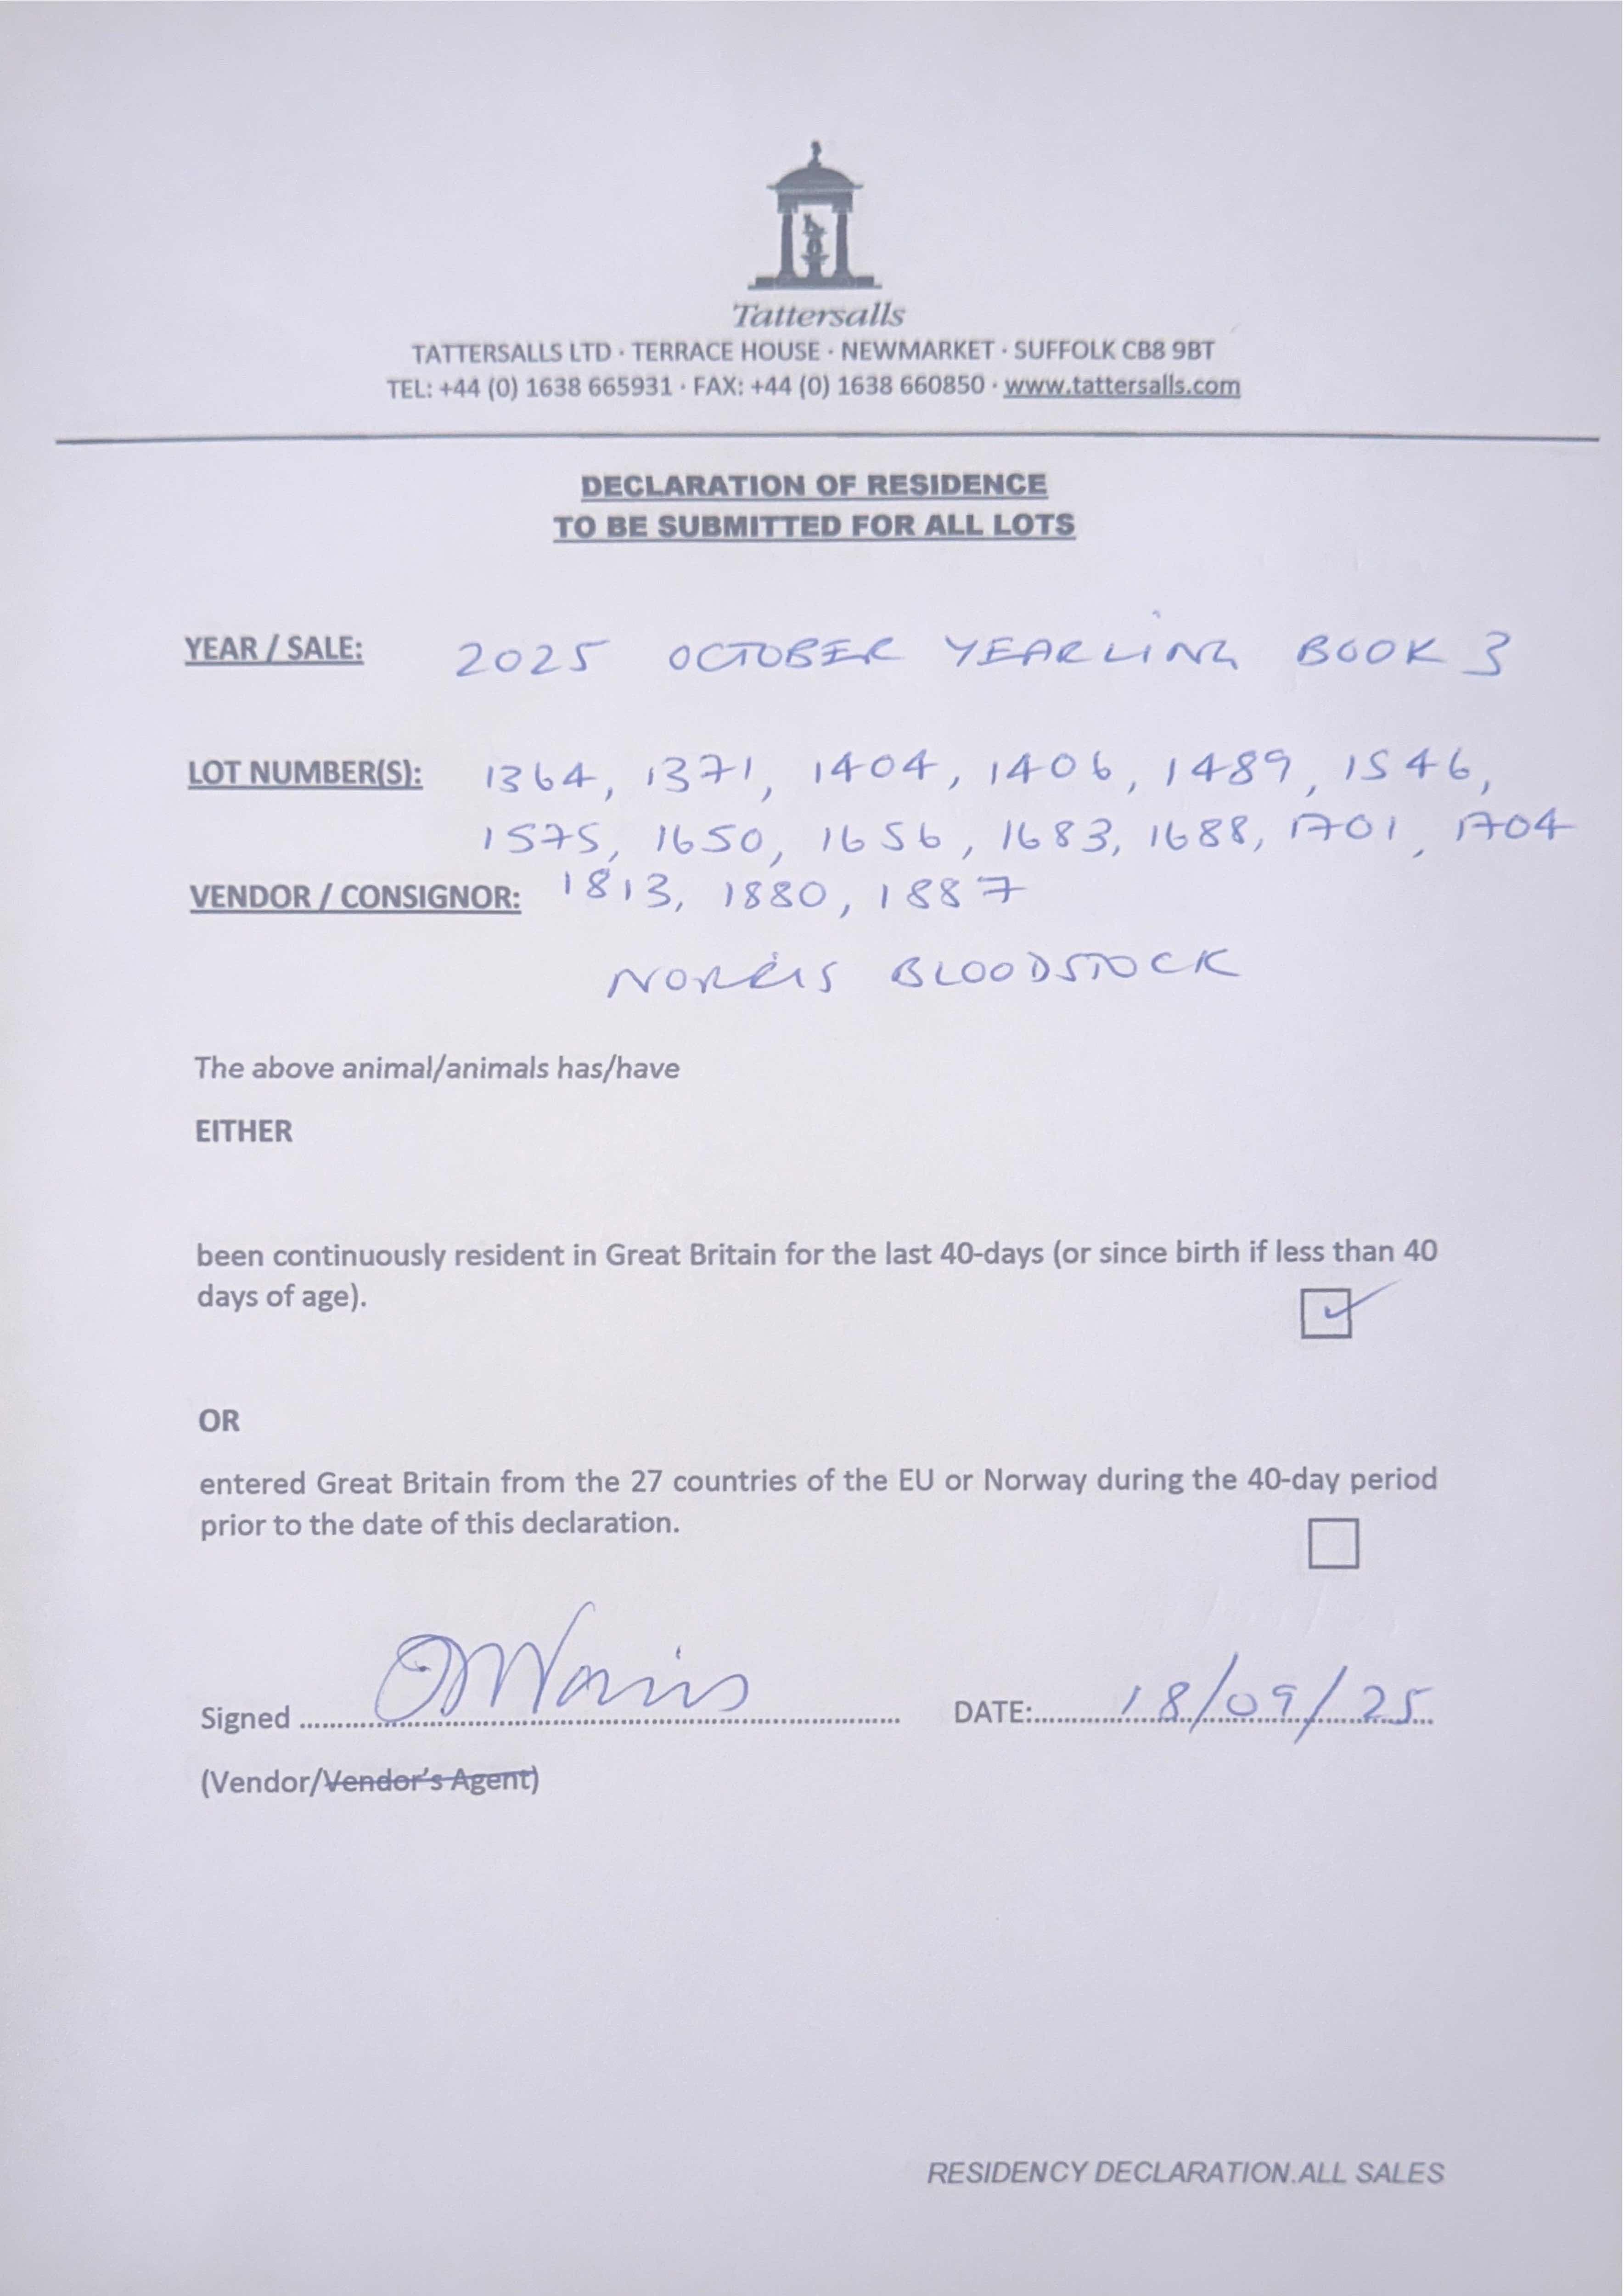 Tattersalls
TATTERSALLS LTD · TERRACE HOUSE · NEWMARKET · SUFFOLK CB8 9BT
TEL: +44 (0) 1638 665931 · FAX: +44 (0) 1638 660850 · www.tattersalls.com
DECLARATION OF RESIDENCE
TO BE SUBMITTED FOR ALL LOTS
YEAR / SALE: 2025 OCTOBER YEARLING BOOK 3
LOT NUMBER(S): 1364, 1371, 1404, 1406, 1489, 1546,
1575, 1650, 1656, 1683, 1688, 1701, 1704
VENDOR / CONSIGNOR: 1813, 1880, 1887
NORRIS BLOODSTOCK
The above animal/animals has/have
EITHER
been continuously resident in Great Britain for the last 40-days (or since birth if less than 40
days of age).
OR
entered Great Britain from the 27 countries of the EU or Norway during the 40-day period
prior to the date of this declaration.
Signed ........ DMNorris ........ DATE:........ 18/09/25
(Vendor/Vendor's Agent)
RESIDENCY DECLARATION.ALL SALES